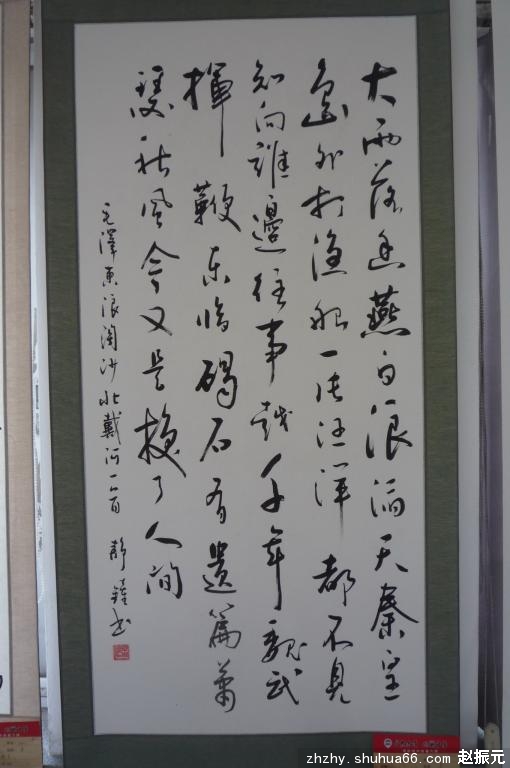 大雨落幽燕白浪滔天秦皇
島外打漁船一片汪洋都不見
知向誰邊往事越千年魏武
揮鞭东临碣石有遺篇萧
瑟秋風今又是换了人間
毛澤東浪淘沙北戴河一首 静 书
zhzhy.shuhua66.com 赵振元